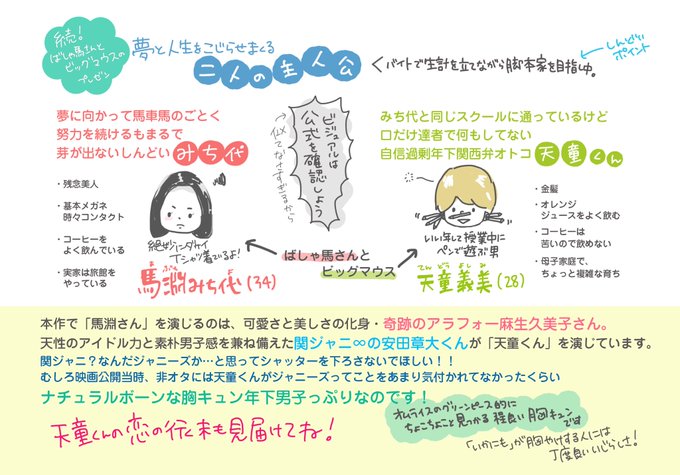 続!
ばしゃ馬さんと
ビッグマウスの
プレゼン
夢と人生をこじらせまくる
二人の主人公
くバイトで生計を立てながら脚本家を目指し中。
しんどい
ポイント
夢に向かって馬車馬のごとく
努力を続けるもまるで
芽が出ないしんどい みち代
・残念美人
・基本メガネ
時々コンタクト
・コーヒーを
よく飲んでいる
・実家は旅館を
やっている
絶妙にダサイ
Tシャツ着ているよ!
まぶち みちよ
馬淵みち代(34)
ビジュアルは
公式を確認しよう
似てなさすぎるから
ばしゃ馬さんと
ビッグマウス
みち代と同じスクールに通っているけど
口だけ達者で何もしてない
自信過剰年下関西弁オトコ 天童くん
いい年して授業中に
ペンで遊ぶ男
てんどう よしみ
天童義美(28)
・金髪
・オレンジ
ジュースをよく飲む
・コーヒーは
苦いので飲めない
・母子家庭で、
ちょっと複雑な育ち
本作で「馬淵さん」を演じるのは、可愛さと美しさの化身・奇跡のアラフォー麻生久美子さん。
天性のアイドル力と素朴男子感を兼ね備えた関ジャニ∞の安田章大くんが「天童くん」を演じています。
関ジャニ?なんだジャニーズか…と思ってシャッターを下ろさないでほしい!!
むしろ映画公開当時、非オタには天童くんがジャニーズってことをあまり気付かれてなかったくらい
ナチュラルボーンな胸キュン年下男子っぷりなのです!
天童くんの恋の行く末も見届けてね!
オムライスのグリーンピース的に
ちょこちょこと見つかる程良い胸キュン
です
「いかにも」が胸やけする人には
丁度良いいじらしさ!